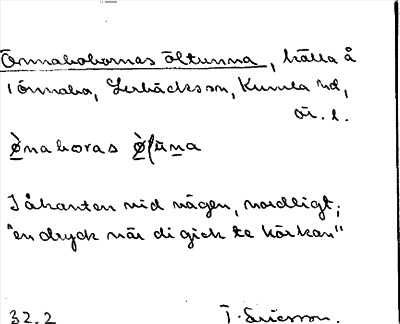 Önnabobornas öltunna, källa å
i Önnabo, Lerbäcks sn, Kumla hd,
Ör. l.
ø̀naboras ø̀ltu̇na
I åkanten vid vägen, nordligt;
"en dryck när di gick te körkan"
32.2 T. Ericsson.